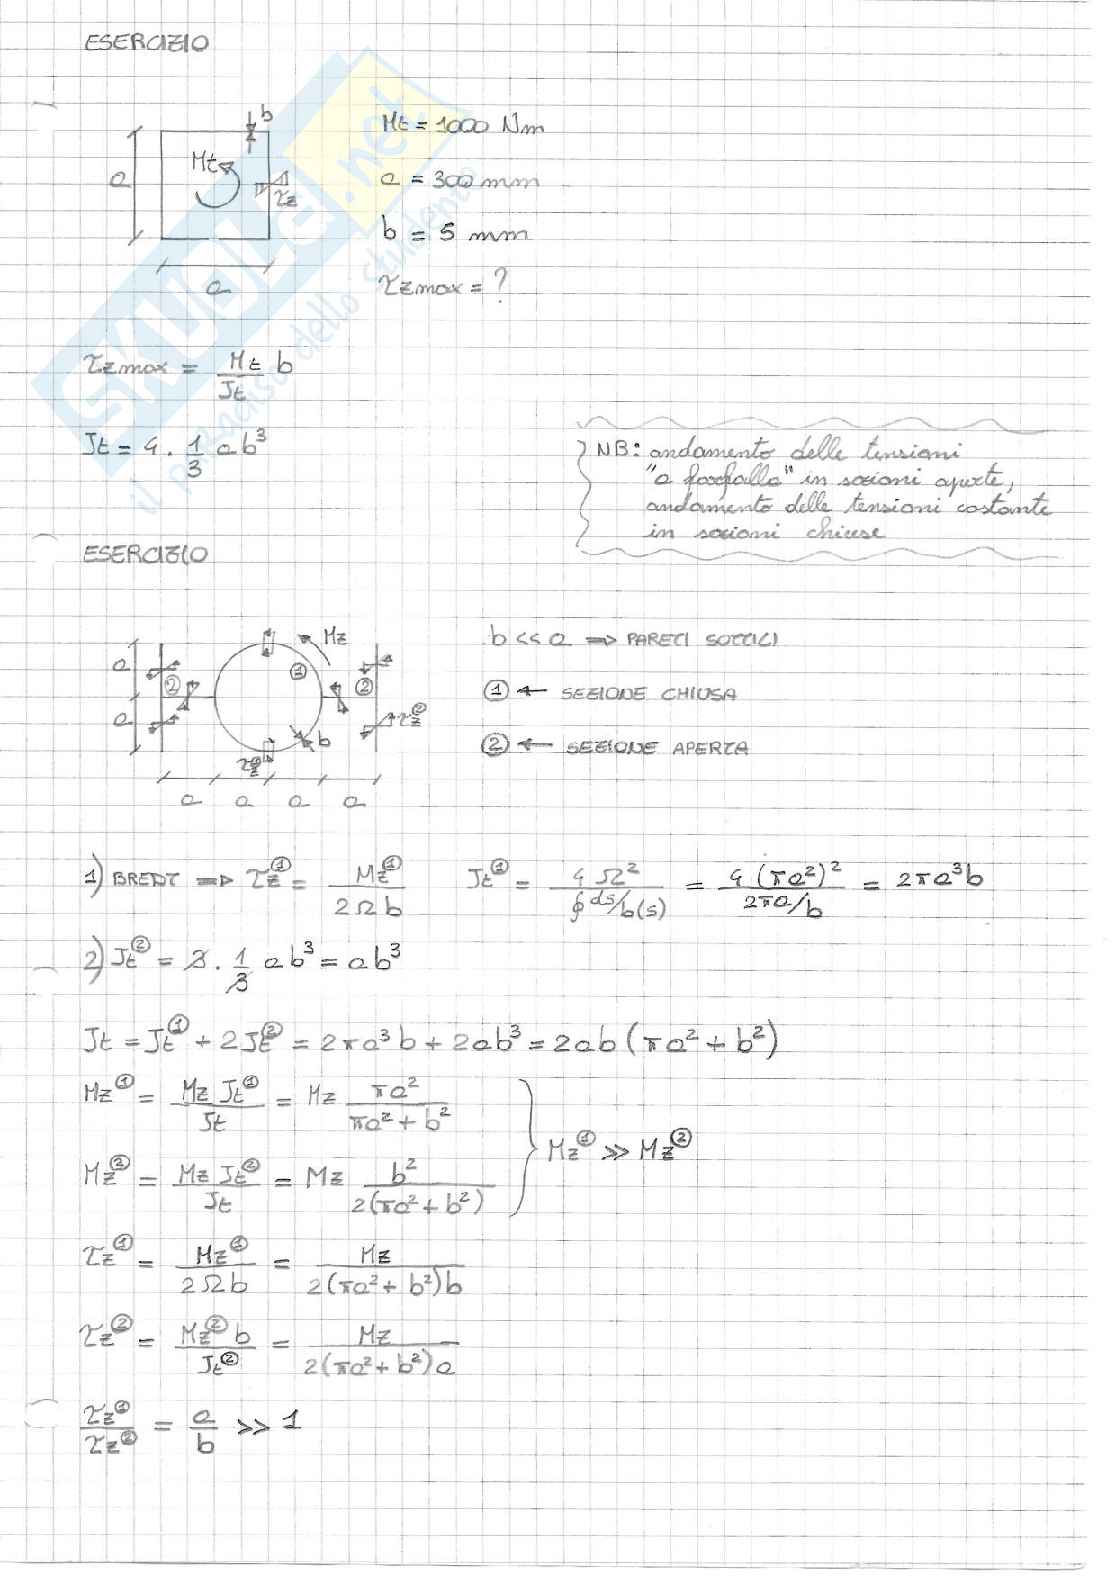 ESERCIZIO
b
Mt
a
τz
a
Mt = 1000 Nm
a = 300 mm
b = 5 mm
τz max = ?
τz max = Mt/Jt b
Jt = 4 · 1/3 ab³
NB: andamento delle tensioni
"a farfalla" in sezioni aperte,
andamento delle tensioni costante
in sezioni chiuse
ESERCIZIO
Mz
a
②
①
②
a
b
τz②
τz①
a a a a
b << a ⇒ PARETI SOTTILI
① ← SEZIONE CHIUSA
② ← SEZIONE APERTA
1) BREDT ⇒ τz① = Mz①/2Ωb Jt① = 4Ω²/∮ds/b(s) = 4(πa²)²/2πa/b = 2πa³b
2) Jt② = 3 · 1/3 ab³ = ab³
Jt = Jt① + 2Jt② = 2πa³b + 2ab³ = 2ab(πa² + b²)
Mz① = Mz Jt①/Jt = Mz πa²/πa² + b²
Mz① >> Mz②
Mz② = Mz Jt②/Jt = Mz b²/2(πa² + b²)
τz① = Mz①/2Ωb = Mz/2(πa² + b²)b
τz② = Mz② b/Jt② = Mz/2(πa² + b²)a
τz①/τz② = a/b >> 1
SKUOLA.net
il paradiso dello studente